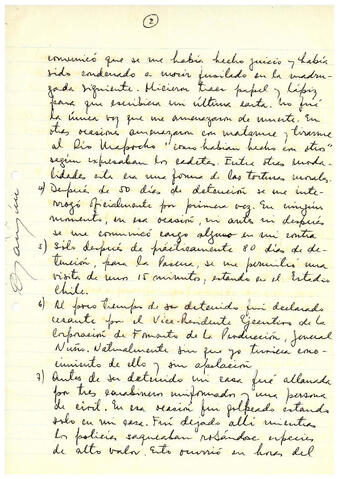 2
comunicó que se me había hecho juicio y había
sido condenado a morir fusilado en la madru-
gada siguiente. Hicieron traer papel y lápiz
para que escribiera un última carta. No fué
la única vez que me amenazaron de muerte. En
otras ocasiones amenazaron con matarme y tirarme
al Río Mapocho "como habían hecho con otro"
según expresaban los cadetes. Entre otras moda-
lidades esta era una forma de las torturas morales.
4) Después de 50 días de detención se me inte-
rrogó oficialmente por primera vez. En ningún
momento, en esa ocasión, ni antes ni después
se me comunicó cargo alguno en mi contra
5) Sólo después de prácticamente 80 días de de-
tención, para la Pascua, se me permitió una
visita de unos 15 minutos, estando en el Estadio
Chile.
6) Al poco tiempo de ser detenido fuí declarado
cesante por el Vice-Presidente Ejecutivo de la
Corporación de Fomento de la Producción, General
Nuño. Naturalmente sin que yo tuviera cono-
cimiento de ello y sin apelación
7) Antes de ser detenido mi casa fué allanada
por tres carabineros uniformados y una persona
de civil. En esa ocasión fuí golpeado estando
solo en mi casa. Fuí dejado allí mientras
los policías saqueaban robándose especies
de alto valor. Esto ocurrió en horas del